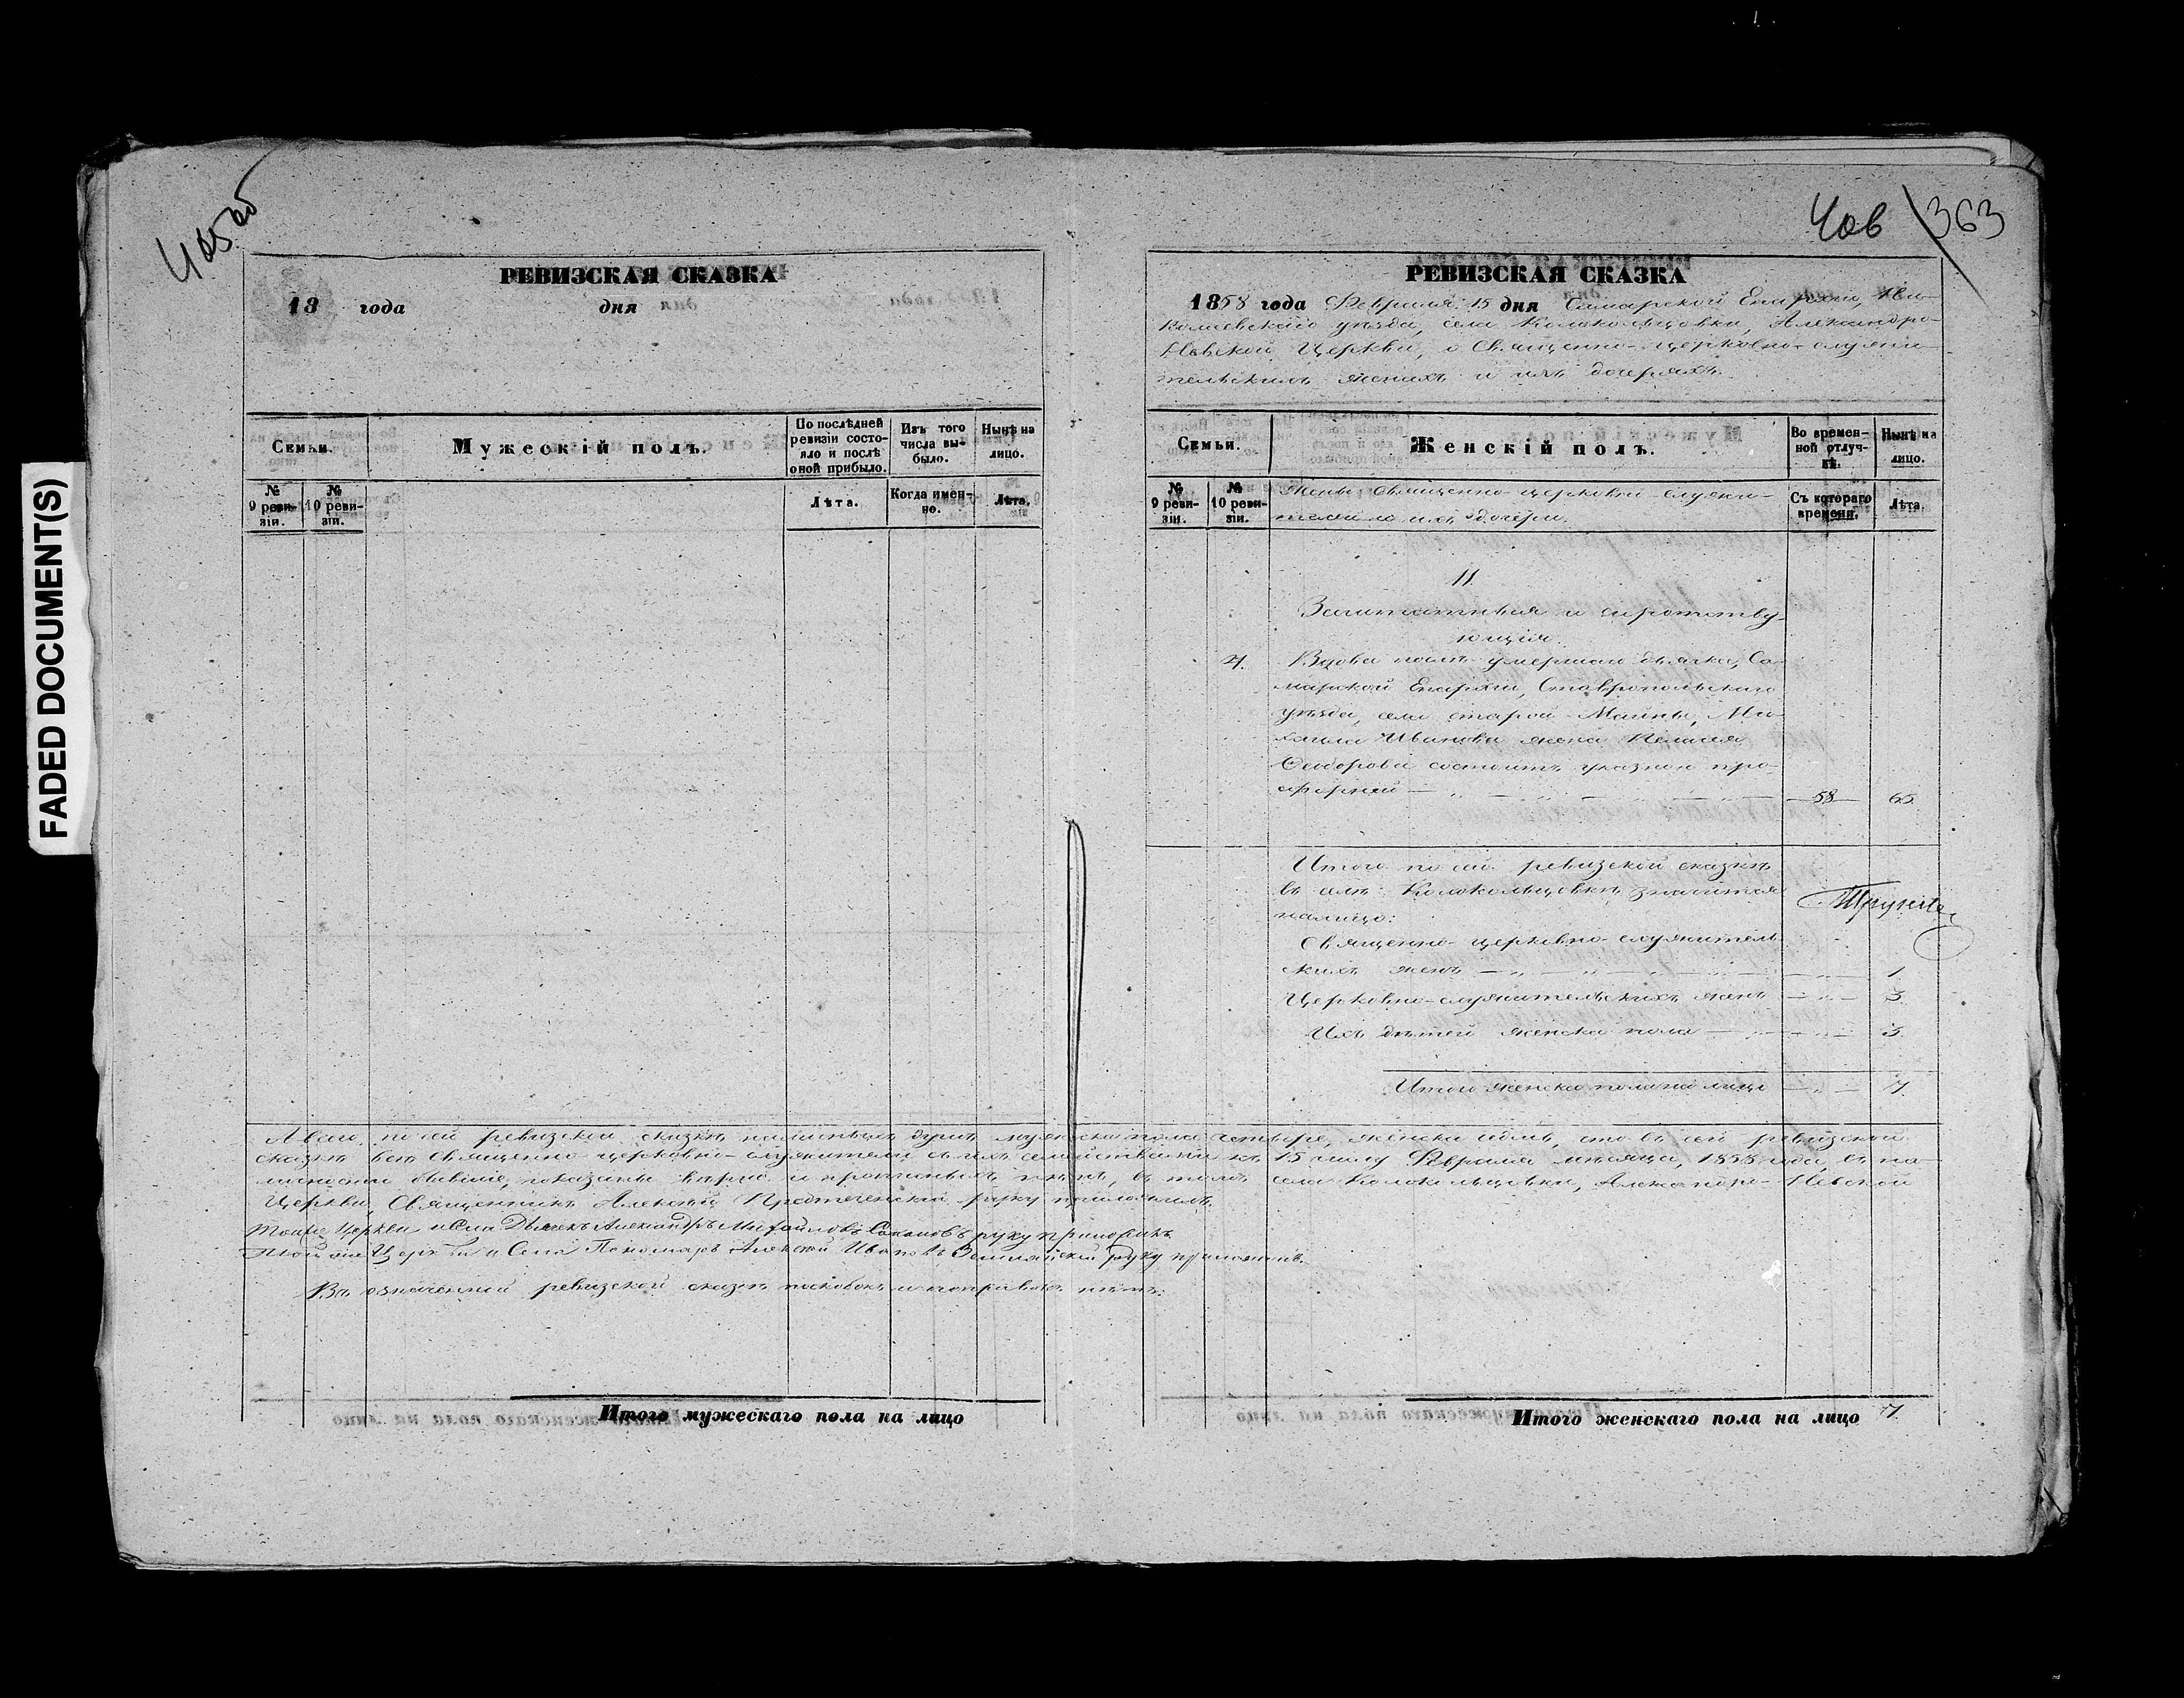 405об
РЕВИЗСКАЯ СКАЗКА
18 года дня
Семьи.
Мужескій полъ.
По послѣдней ревизіи состояло и послѣ оной прибыло.
Изъ того числа выбыло.
Нынѣ на лицо.
№ 9 ревизіи.
№ 10 ревизіи.
Лѣта.
Когда именно.
Лѣта.
406 363
РЕВИЗСКАЯ СКАЗКА
1858 года Февраля 15 дня Самарской Епархіи, Ни-
колаевскаго уѣзда, села Колокольцовки, Александро-
Невской Церкви, о Священно-церковно-служи-
тельскихъ женахъ и ихъ дочеряхъ.
Семьи.
Женскій полъ.
Во временной отлучкѣ.
Нынѣ на лицо.
№ 9 ревизіи.
№ 10 ревизіи.
Жены Священно-церковно-служи-
телей и ихъ дочери.
Съ котораго времени.
Лѣта.
II.
Заштатныя и сиротству-
ющія.
4. Вдова умершаго дьячка, Са-
марской Епархіи, Ставропольскаго
уѣзда, села старой-Майны, Ми-
хаила Иванова жена
Ѳеодорова состоитъ про-
сфорней — 58 65.
Итого по сей ревизской сказкѣ
въ селѣ Колокольцовкѣ значится
налицо:
Священно-церковно-служитель-
скихъ женъ 1.
Церковно-служительскихъ женъ 3.
Ихъ дѣтей женска пола 3.
Итого женска пола на лицо 7.
А всего по сей ревизской сказкѣ наличныхъ душъ мужеска пола четыре, женска седмь, что въ сей ревизской
сказкѣ всѣ Священно-церковно-служители съ ихъ семействами къ 15 числу Февраля мѣсяца, 1858 года, въ на-
личности бывшіе, показаны и прописныхъ нѣтъ, въ томъ села Колокольцовки, Александро-Невской
Церкви, Священникъ Алексѣй Предтеченскій руку приложилъ.
Тойже Церкви и Села Дьячекъ Александръ Михайловъ руку приложилъ
Той же Церкви и Села Пономарь Алексѣй Ивановъ руку приложилъ.
Въ означенной ревизской сказкѣ поскобокъ и поправокъ нѣтъ.
Итого мужескаго пола на лицо
Итого женскаго пола на лицо 7.
FADED DOCUMENT(S)